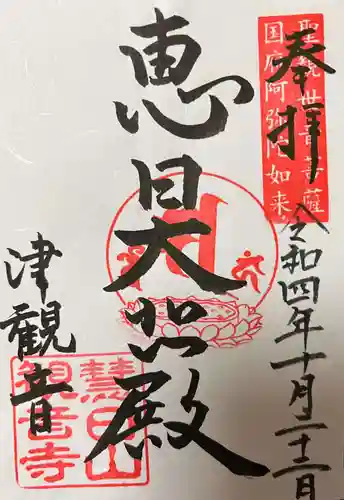 奉拝
聖観世音菩薩
国府阿弥陀如来
令和四年十月二十二日
恵日大悲殿
津観音
慧日山
観音寺